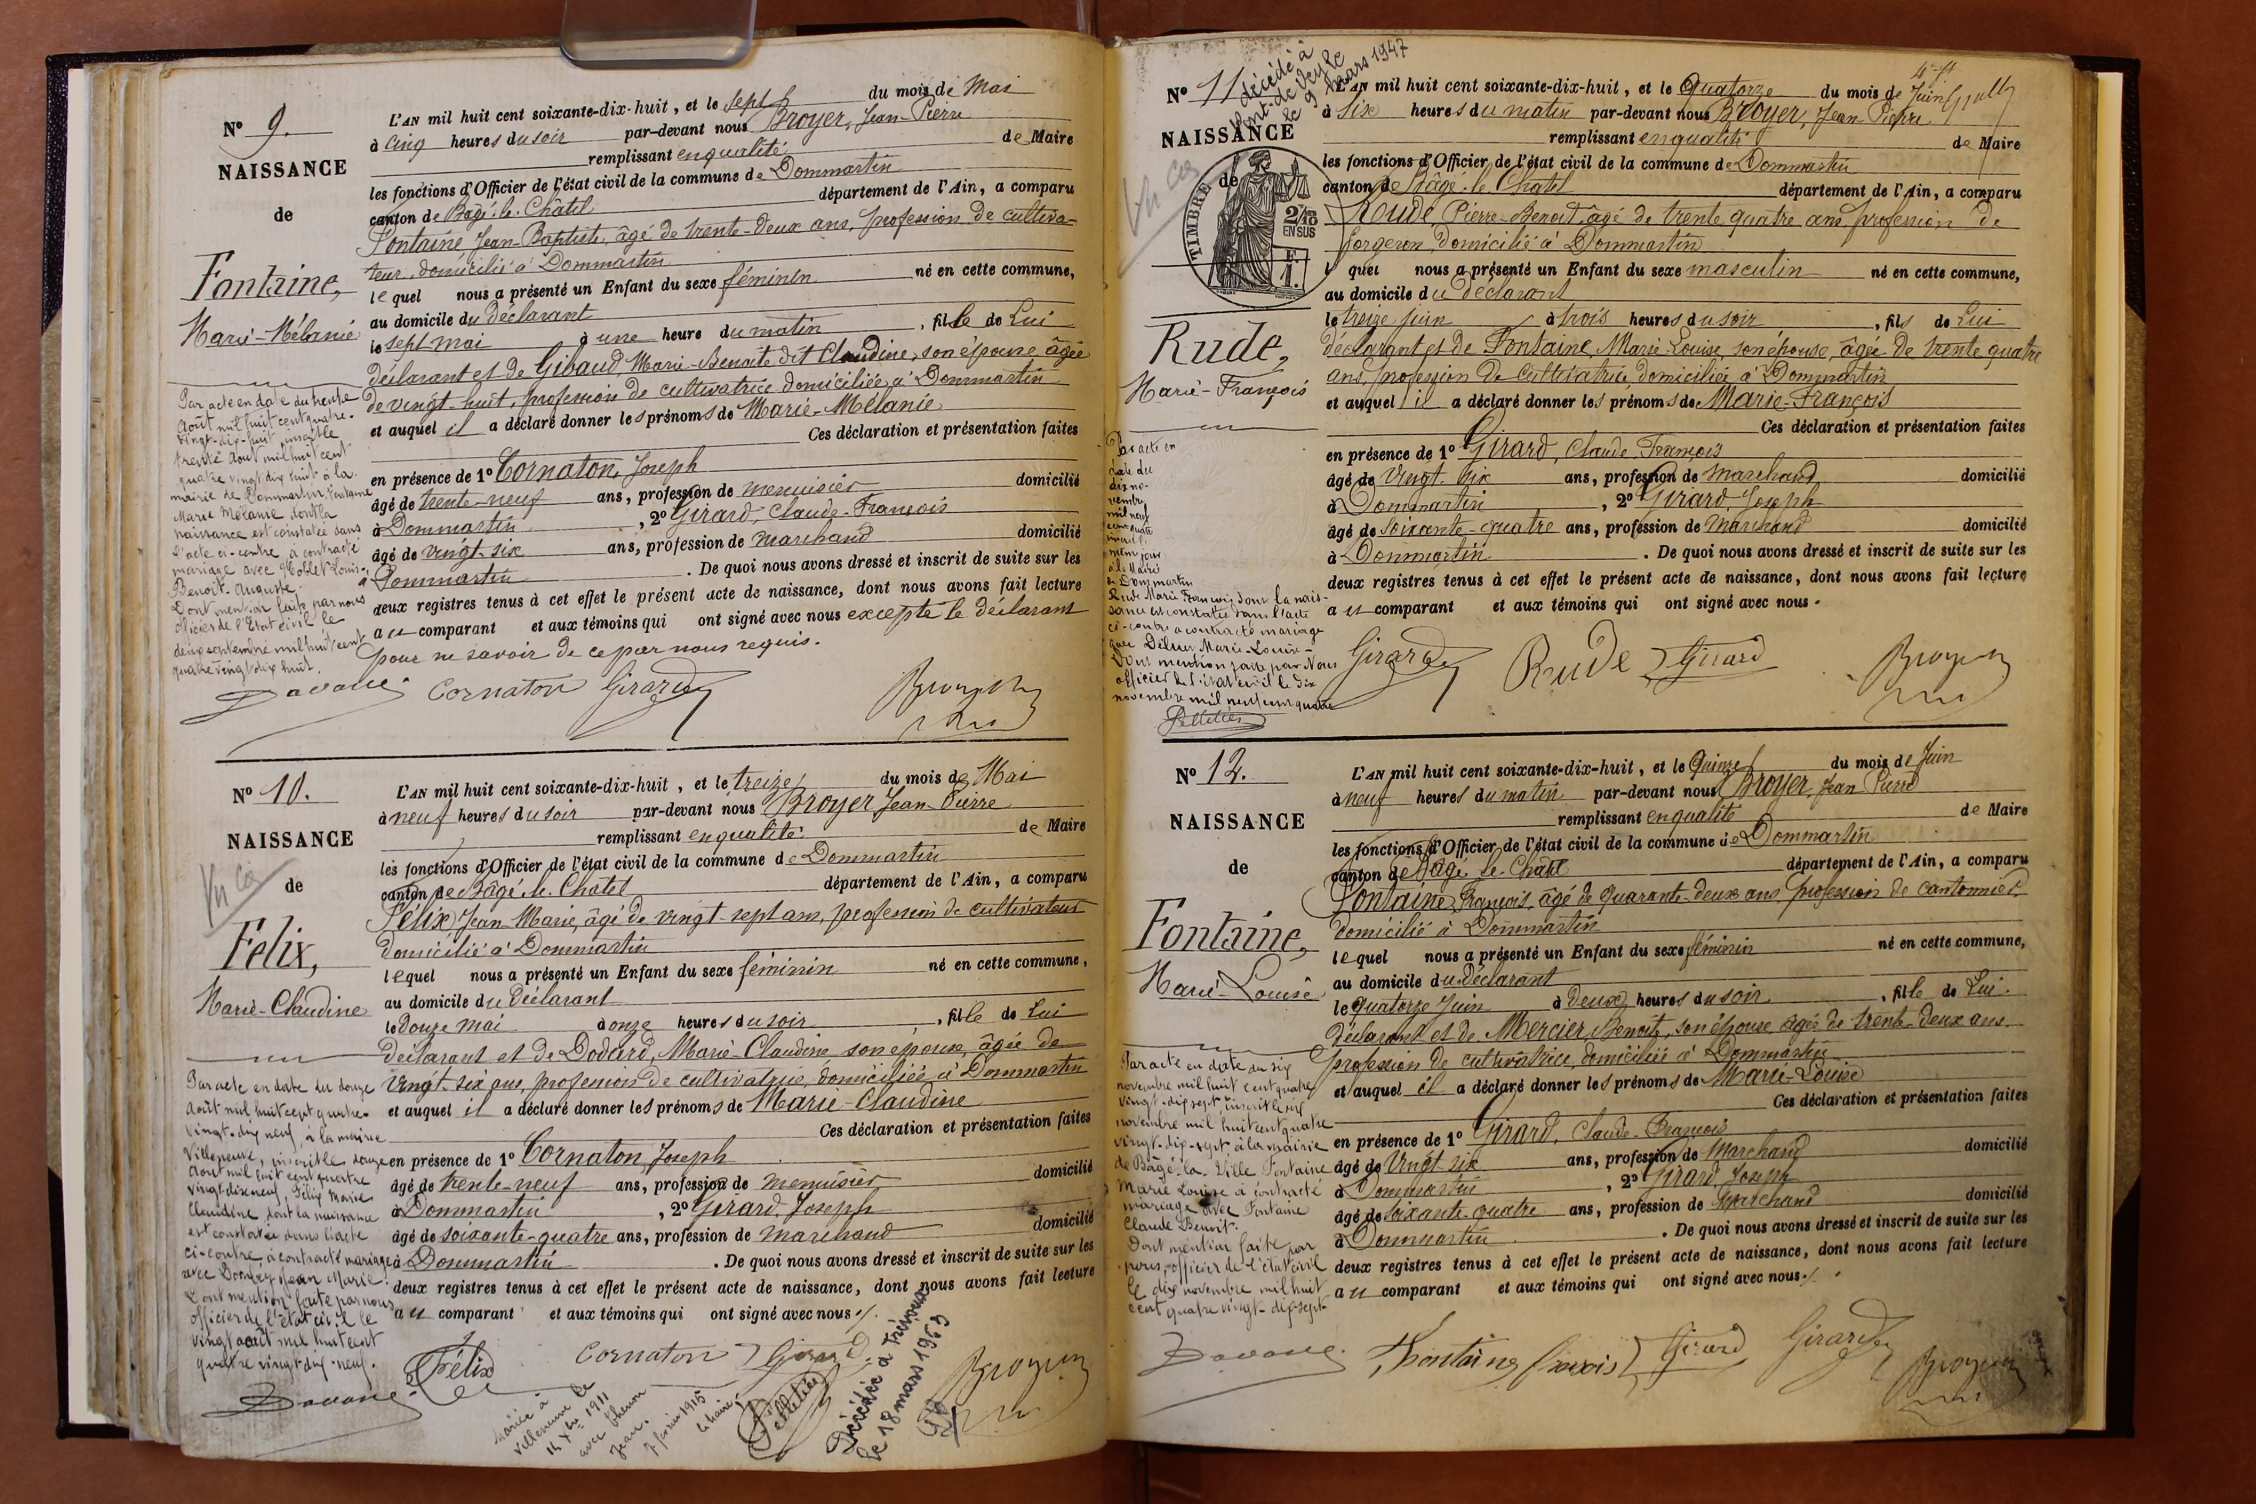 N° 9.
NAISSANCE
de
Fontaine,
Marie-Mélanie
L'AN mil huit cent soixante-dix-huit, et le sept du mois de Mai
à cinq heures du soir par-devant nous Broyer, Jean-Pierre
remplissant en qualité de Maire
les fonctions d'Officier de l'état civil de la commune de Dommartin
canton de Bagé-le-Châtel département de l'Ain, a comparu
Fontaine Jean-Baptiste, âgé de trente-deux ans, profession de cultiva-
teur, domicilié à Dommartin
lequel nous a présenté un Enfant du sexe féminin né en cette commune,
au domicile du déclarant
le sept mai à une heure du matin, fille de Lui
déclarant et de Gibaud, Marie-Benoite dit Claudine, son épouse âgée
de vingt-huit, profession de cultivatrice domiciliée à Dommartin
et auquel il a déclaré donner les prénoms de Marie-Mélanie
Ces déclaration et présentation faites
en présence de 1° Cornaton, Joseph
âgé de trente-neuf ans, profession de menuisier domicilié
à Dommartin, 2° Girard, Claude-François
âgé de vingt six ans, profession de marchand domicilié
à Dommartin. De quoi nous avons dressé et inscrit de suite sur les
deux registres tenus à cet effet le présent acte de naissance, dont nous avons fait lecture
au comparant et aux témoins qui ont signé avec nous excepté le déclarant
pour ne savoir de ce par nous requis.
Par acte en date du trente
Août mil huit cent quatre-
vingt-dix-huit, inscrit le
trente Août mil huit cent
quatre vingt dix huit à la
mairie de Dommartin Fontaine
Marie Mélanie dont la
naissance est constatée dans
l'acte ci-contre, a contracté
mariage avec Louis-
Benoit-Auguste.
Dont mention faite par nous
officier de l'Etat civil le
deux septembre mil huit cent
quatre vingt dix huit.
Cornaton Girard Broyer
N° 10.
NAISSANCE
de
Felix,
Marie-Claudine
L'AN mil huit cent soixante-dix-huit, et le treize du mois de Mai
à neuf heures du soir par-devant nous Broyer Jean-Pierre
remplissant en qualité de Maire
les fonctions d'Officier de l'état civil de la commune de Dommartin
canton de Bâgé-le-Châtel département de l'Ain, a comparu
Félix Jean-Marie, âgé de vingt-sept ans, profession de cultivateur
domicilié à Dommartin
lequel nous a présenté un Enfant du sexe féminin né en cette commune,
au domicile du Déclarant
le Douze mai à onze heures du soir, fille de Lui
déclarant et de Dodard, Marie-Claudine son épouse, âgée de
vingt-six ans, profession de cultivatrice, domiciliée à Dommartin
et auquel il a déclaré donner les prénoms de Marie-Claudine
Ces déclaration et présentation faites
en présence de 1° Cornaton, Joseph
âgé de trente-neuf ans, profession de menuisier domicilié
à Dommartin, 2° Girard, Joseph
âgé de soixante-quatre ans, profession de marchand domicilié
à Dommartin. De quoi nous avons dressé et inscrit de suite sur les
deux registres tenus à cet effet le présent acte de naissance, dont nous avons fait lecture
au comparant et aux témoins qui ont signé avec nous
Par acte en date du douze
Août mil huit cent quatre-
vingt-dix neuf, à la mairie
Villeneuve, inscrit le douze
Aout mil huit cent quatre
vingt dix neuf, Félix Marie
Claudine, dont la naissance
est constatée dans l'acte
ci-contre, a contracté mariage
avec Jean Marie.
Dont mention faite par nous
officier de l'Etat civil le
vingt août mil huit cent
quatre vingt dix-neuf.
Félix Cornaton Girard Broyer
mariée à
Villeneuve le
1911
avec
Jean.
1915
le Maire
Pelletier
Décédée à Trévoux
le 18 mars 1963
N° 11
décédé à
Pont-de-Veyle
le 9 Mars 1947
NAISSANCE
de
TIMBRE
2/10
EN SUS
F.
1.
Rude,
Marie-François
L'AN mil huit cent soixante-dix-huit, et le Quatorze du mois de Juin
à six heures du matin par-devant nous Broyer, Jean Pierre
remplissant en qualité de Maire
les fonctions d'Officier de l'état civil de la commune de Dommartin
canton de Bâgé-le-Chatel département de l'Ain, a comparu
Rude, Pierre-Benoit, âgé de trente quatre ans profession de
forgeron, domicilié à Dommartin
lequel nous a présenté un Enfant du sexe masculin né en cette commune,
au domicile du déclarant
le treize juin à trois heures du soir, fils de Lui
déclarant et de Fontaine, Marie-Louise, son épouse, âgée de trente quatre
ans, profession de Cultivatrice, domiciliée à Dommartin
et auquel il a déclaré donner les prénoms de Marie-François
Ces déclaration et présentation faites
en présence de 1° Girard, Claude François
âgé de Vingt-six ans, profession de marchand domicilié
à Dommartin, 2° Girard, Joseph
âgé de soixante-quatre ans, profession de Marchand domicilié
à Dommartin. De quoi nous avons dressé et inscrit de suite sur les
deux registres tenus à cet effet le présent acte de naissance, dont nous avons fait lecture
au comparant et aux témoins qui ont signé avec nous.
Par acte en
date du
dix no-
vembre
mil neuf
cent quatre
inscrit le
même jour
à la Mairie
de Dommartin
Rude Marie François, dont la nais-
sance est constatée dans l'acte
ci-contre a contracté mariage
avec Marie-Louise-
Dont mention faite par Nous
officier de l'état civil le dix
novembre mil neuf cent quatre
Pelletier
Girard Rude Girard Broyer
N° 12.
NAISSANCE
de
Fontaine,
Marie-Louise
L'AN mil huit cent soixante-dix-huit, et le Quinze du mois de Juin
à neuf heures du matin par-devant nous Broyer, Jean Pierre
remplissant en qualité de Maire
les fonctions d'Officier de l'état civil de la commune de Dommartin
canton de Bâgé-le-Chatel département de l'Ain, a comparu
Fontaine, François, âgé de Quarante-deux ans, profession de cantonnier
domicilié à Dommartin
lequel nous a présenté un Enfant du sexe féminin né en cette commune,
au domicile du Déclarant
le Quatorze Juin à Deux heures du soir, fille de Lui
déclarant et de Mercier, Benoite, son épouse âgée de trente-deux ans
profession de cultivatrice, domiciliée à Dommartin
et auquel il a déclaré donner les prénoms de Marie-Louise
Ces déclaration et présentation faites
en présence de 1° Girard, Claude-François
âgé de Vingt six ans, profession de Marchand domicilié
à Dommartin, 2° Girard, Joseph
âgé de soixante-quatre ans, profession de Marchand domicilié
à Dommartin. De quoi nous avons dressé et inscrit de suite sur les
deux registres tenus à cet effet le présent acte de naissance, dont nous avons fait lecture
au comparant et aux témoins qui ont signé avec nous.
Par acte en date du six
novembre mil huit cent quatre
vingt-dix sept, inscrit le six
novembre mil huit cent quatre
vingt-dix-sept à la mairie
de Bâgé-la-Ville Fontaine
Marie Louise a contracté
mariage avec Fontaine
Claude Benoit.
Dont mention faite par
nous, officier de l'état civil
le dix novembre mil huit
cent quatre vingt-dix-sept.
Fontaine françois Girard Girard Broyer